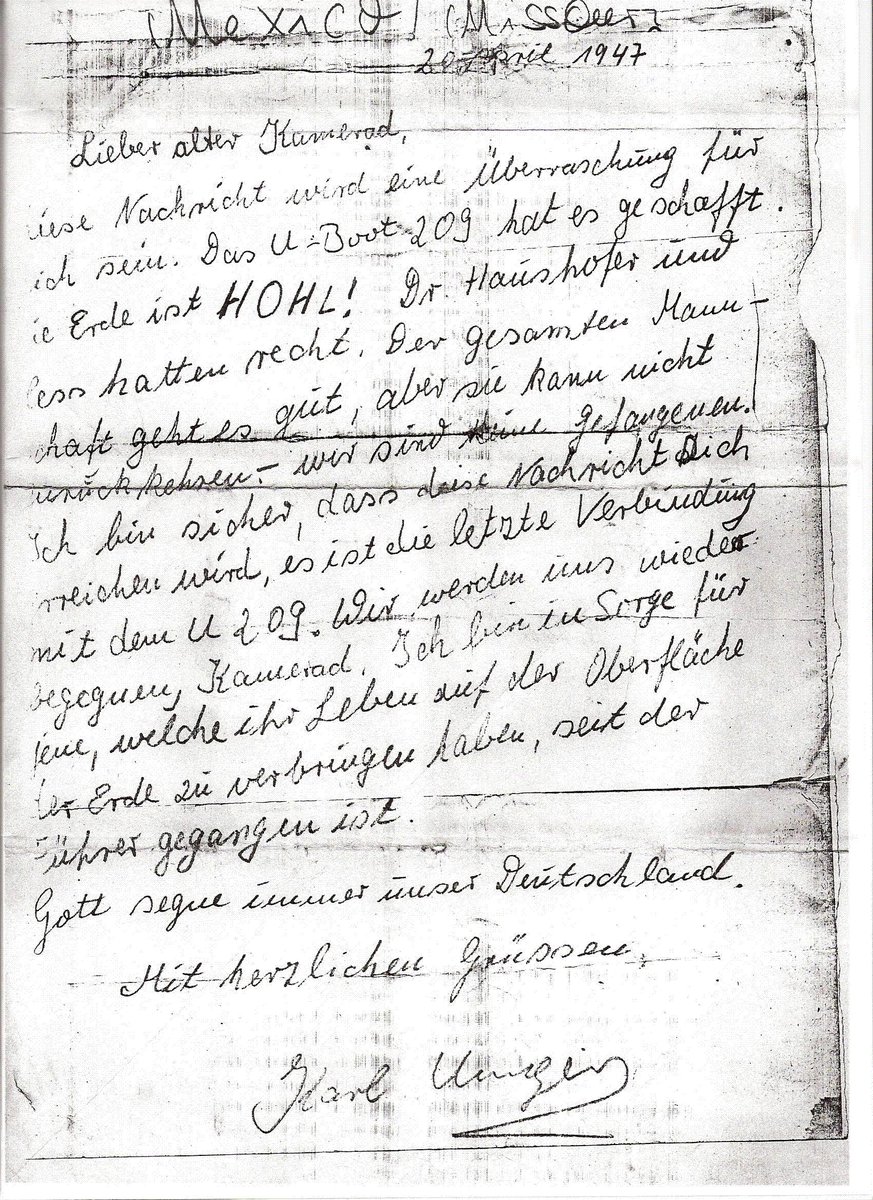 Mexico / (Missouri
20 April 1947
Lieber alter Kamerad,
iese Nachricht wird eine Überraschung für
ich sein. Das U-Boot 209 hat es geschafft.
ie Erde ist HOHL! Dr. Haushofer und
ess hatten recht. Der gesamten Mann-
chaft geht es gut, aber sie kann nicht
urückkehren - wir sind keine Gefangenen.
Ich bin sicher, dass deise Nachricht Dich
rreichen wird, es ist die letzte Verbindung
mit dem U 209. Wir werden uns wieder
begegnen, Kamerad. Ich bin in Sorge für
jene, welche ihr Leben auf der Oberfläche
der Erde zu verbringen haben, seit der
Führer gegangen ist.
Gott segne immer unser Deutschland.
Mit herzlichen Grüssen,
Karl Unger